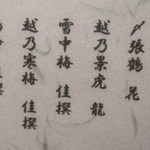 〆張鶴 花
越乃景虎 龍
雪中梅 佳撰
越乃寒梅 佳撰